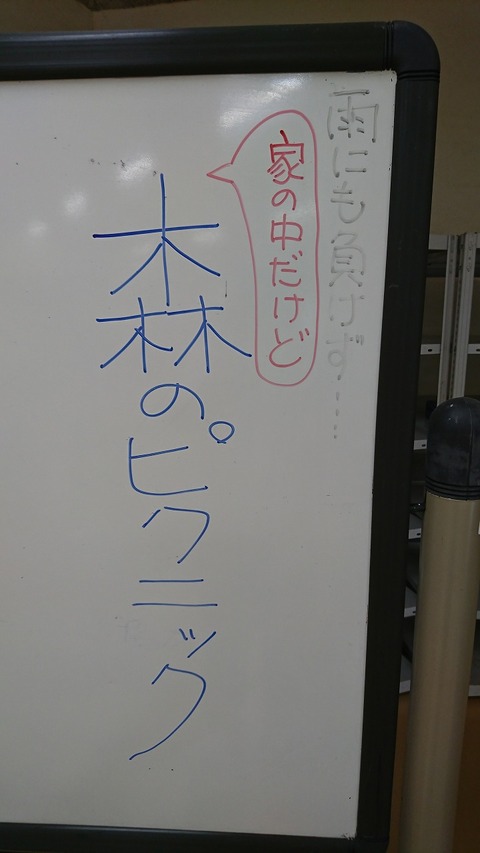 雨にも負けず……
家の中だけど
森のピクニック